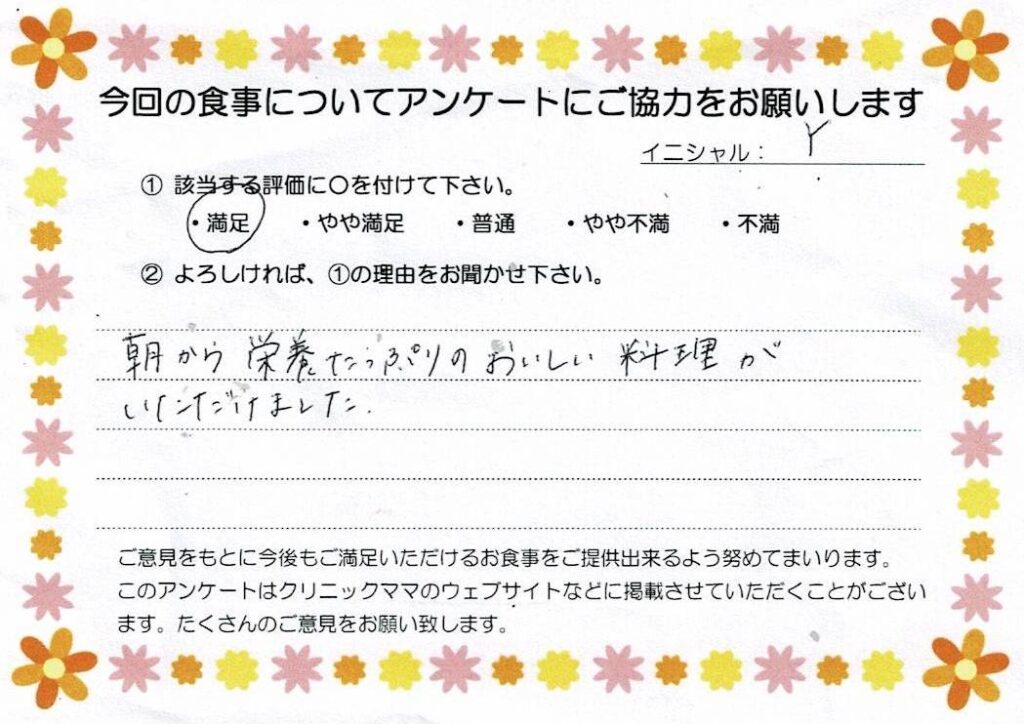 今回の食事についてアンケートにご協力をお願いします
イニシャル： Y
① 該当する評価に〇を付けて下さい。
・満足 ・やや満足 ・普通 ・やや不満 ・不満
② よろしければ、①の理由をお聞かせ下さい。
朝から栄養たっぷりのおいしい料理が
いただけました.
ご意見をもとに今後もご満足いただけるお食事をご提供出来るよう努めてまいります。
このアンケートはクリニックママのウェブサイトなどに掲載させていただくことがござい
ます。たくさんのご意見をお願い致します。